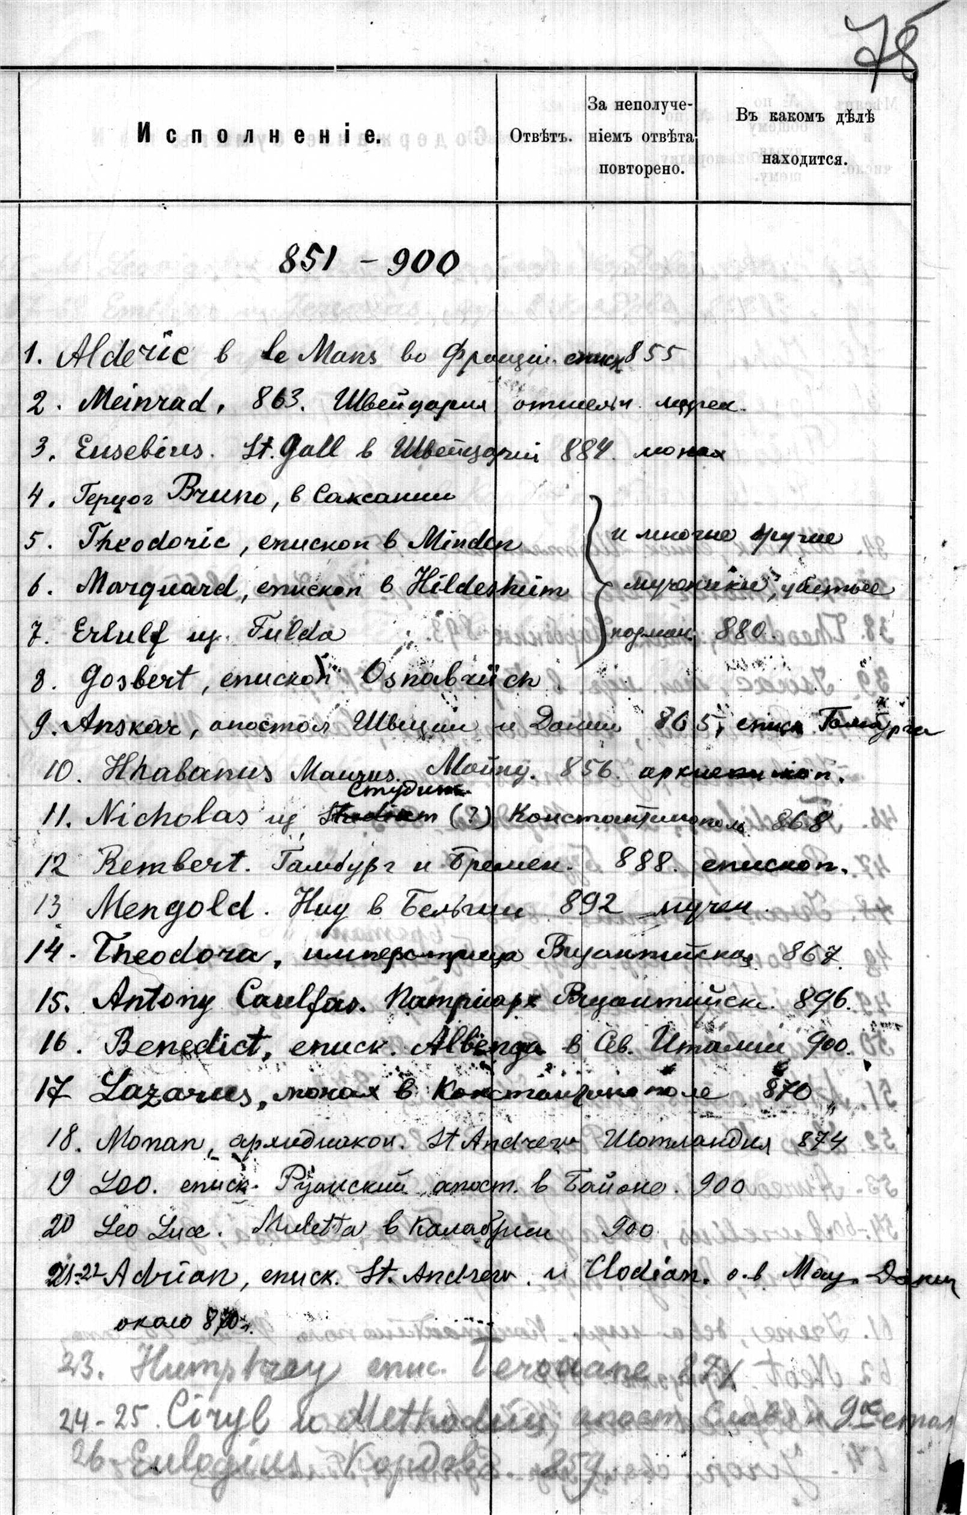 78
Исполненіе.
Отвѣтъ.
За неполуче-
ніемъ отвѣта
повторено.
Въ какомъ дѣлѣ
находится.
851 - 900
1. Alderic в le Mans во Франціи. епис 855
2. Meinrad, 863. Швейцария отшельн. мучен.
3. Eusebius. St. Gall в Швейцаріи 884. монах
4. Герцог Bruno, в Саксонии
5. Theodoric, епископ в Minden
6. Marquard, епископ в Hildesheim
7. Erlulf из Fulda
и многие другие
мученики, убитые
норман. 880.
8. Gosbert, епископ Osnabrück
9. Anskar, апостол Швеции и Дании 865, епис Гамбурга
10. Hhabanus Maurus. Майнц. 856. архиепископ.
Студит
11. Nicholas из Studium (?) Константинополь 868
12 Rembert. Гамбург и Бремен. 888. епископ.
13 Mengold. Huy в Бельгии 892 мучен.
14. Theodora, императрица Византийская 867.
15. Antony Caulfas. Патриарх Византийск. 896.
16. Benedict, еписк. Albenga в Св. Италии 900.
17 Lazarus, монах в Константинополе 870
18. Monan, архидиакон. St Andrew Шотландия 874
19 Leo. еписк. Руанский апост. в Байоне. 900
20 Leo Luce. Muletta в Калабрии 900
21-22 Adrian, еписк. St. Andrew. и Clodian. о-в May
около 870.
23. Humphrey епис. Terouane 871
24-25. Ciryl и Methodius, апост. Слав. и
26 Eulogius Кордова. 859.